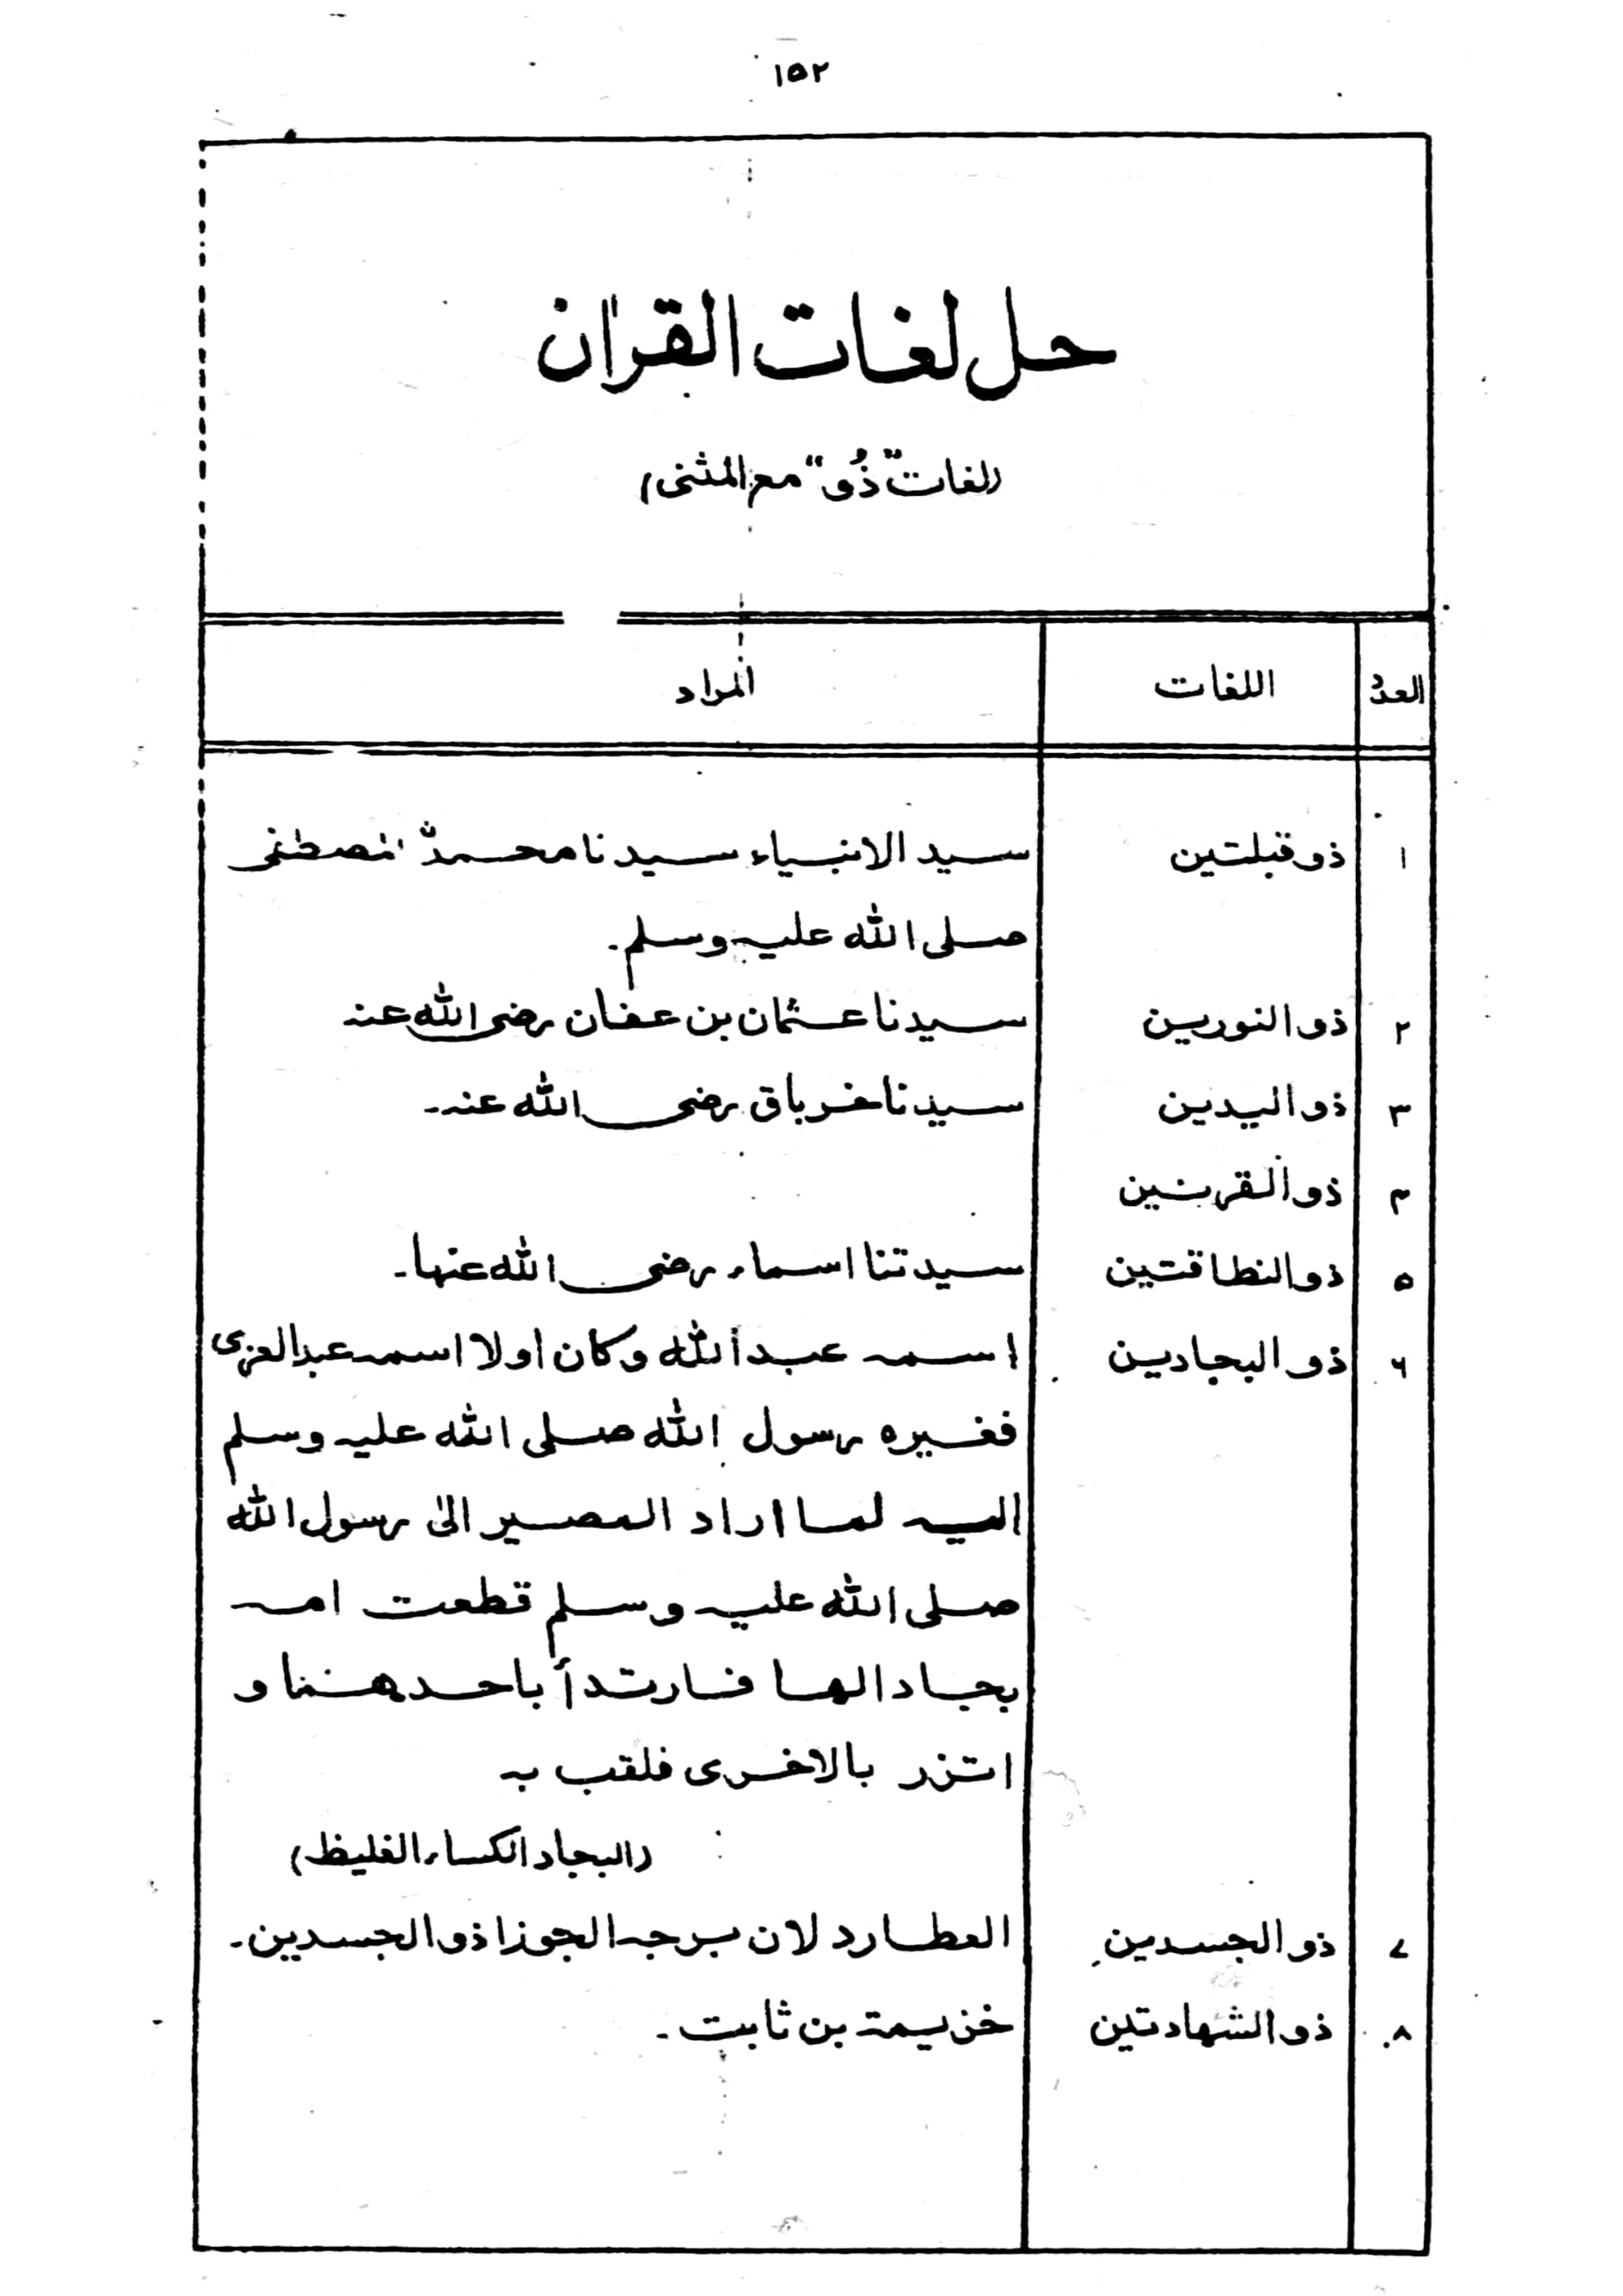 ١٥٢
حل لغات القران
(لغات "ذُو" مع المثنى)
العدد اللغات المراد
١ ذو قبلتين سيد الانبياء سيدنا محمد المصطفى
صلى الله عليه وسلم۔
٢ ذو النورين سيدنا عثمان بن عفان رضى الله عنه
٣ ذو اليدين سيدنا خرباق رضى الله عنه۔
٤ ذو القرنين
٥ ذو النطاقتين سيدتنا اسماء رضى الله عنها۔
٦ ذو البجادين اسمه عبد الله وكان اولا اسمه عبد العزى
فغيره رسول الله صلى الله عليه وسلم
اليه لما اراد المصير الى رسول الله
صلى الله عليه وسلم قطعت امه
بجاد الها فارتدأ باحدهنما و
اتزر بالاخرى فلقب به
(البجاد الكساء الغليظ)
٧ ذو الجسدين العطارد لان برجه الجوزا ذو الجسدين۔
٨ ذو الشهادتين خزيمة بن ثابت۔